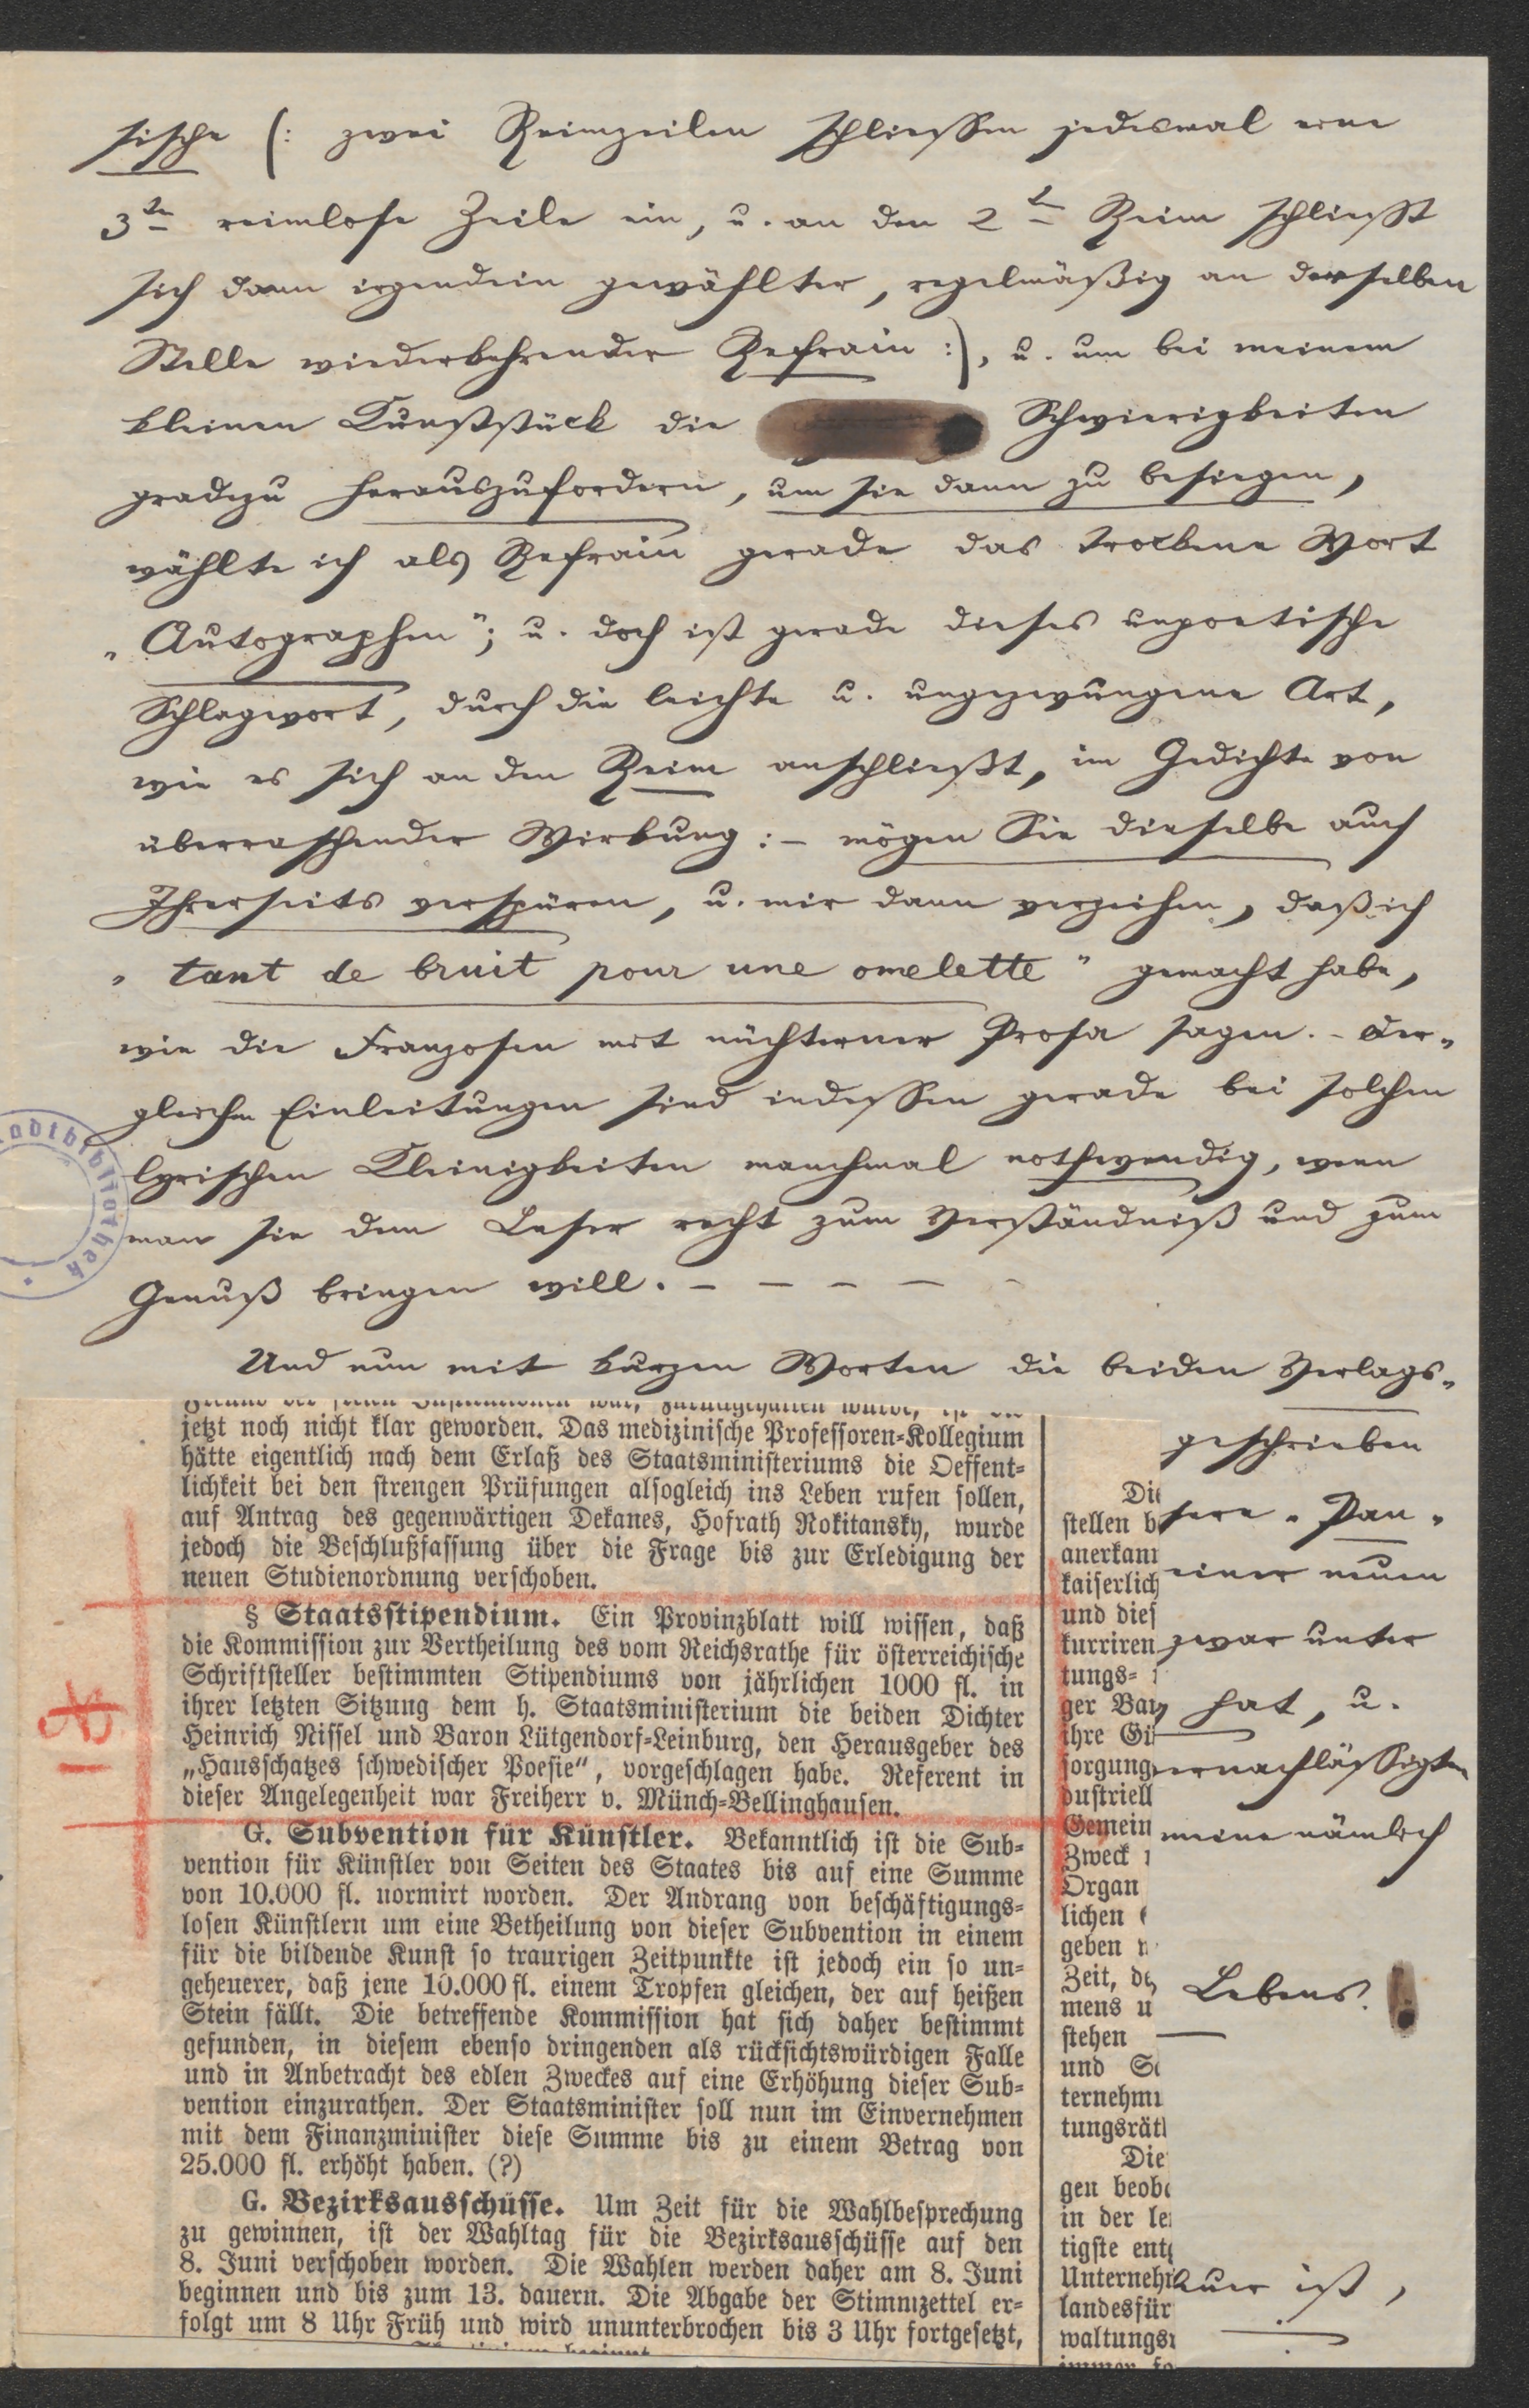 sische (: zwei Reimzeilen schliessen jedesmal eine
3te reimlose Zeile ein, u. an den 2t Reim schliesst
sich dann irgendein gewählter, regelmäßig an derselben
Stelle wiederkehrender Refrain :), u. um bei meinem
kleinen Kunststück die Schwierigkeiten
gradezu herauszufordern, um sie dann zu besiegen,
wählte ich als Refrain gerade das trockene Wort
„Autographen"; u. doch ist gerade dieses unpoetische
Schlagwort, durch die leichte u. ungezwungene Art,
wie es sich an den Reim anschließt, im Gedichte von
überraschender Wirkung : – mögen Sie dieselbe auch
Ihrerseits verspüren, u. mir dann verzeihen, daß ich
„tant de bruit pour une omelette" gemacht habe,
wie die Franzosen mit nüchterner Prosa sagen. – Der-
gleichen Einleitungen sind indessen gerade bei solchen
lyrischen Kleinigkeiten manchmal nothwendig, wenn
man sie dem Leser recht zum Verständniß und zum
Genuß bringen will. – – – – –
Und nun mit kurzen Worten die beiden Verlags-
adtbibliothek
jetzt noch nicht klar geworden. Das medizinische Professoren-Kollegium
hätte eigentlich nach dem Erlaß des Staatsministeriums die Oeffent-
lichkeit bei den strengen Prüfungen alsogleich ins Leben rufen sollen,
auf Antrag des gegenwärtigen Dekanes, Hofrath Rokitansky, wurde
jedoch die Beschlußfassung über die Frage bis zur Erledigung der
neuen Studienordnung verschoben.
§ Staatsstipendium. Ein Provinzblatt will wissen, daß
die Kommission zur Vertheilung des vom Reichsrathe für österreichische
Schriftsteller bestimmten Stipendiums von jährlichen 1000 fl. in
ihrer letzten Sitzung dem h. Staatsministerium die beiden Dichter
Heinrich Nissel und Baron Lütgendorf-Leinburg, den Herausgeber des
„Hausschatzes schwedischer Poesie", vorgeschlagen habe. Referent in
dieser Angelegenheit war Freiherr v. Münch-Bellinghausen.
G. Subvention für Künstler. Bekanntlich ist die Sub-
vention für Künstler von Seiten des Staates bis auf eine Summe
von 10.000 fl. normirt worden. Der Andrang von beschäftigungs-
losen Künstlern um eine Betheilung von dieser Subvention in einem
für die bildende Kunst so traurigen Zeitpunkte ist jedoch ein so un-
geheuerer, daß jene 10.000 fl. einem Tropfen gleichen, der auf heißen
Stein fällt. Die betreffende Kommission hat sich daher bestimmt
gefunden, in diesem ebenso dringenden als rücksichtswürdigen Falle
und in Anbetracht des edlen Zweckes auf eine Erhöhung dieser Sub-
vention einzurathen. Der Staatsminister soll nun im Einvernehmen
mit dem Finanzminister diese Summe bis zu einem Betrag von
25.000 fl. erhöht haben. (?)
G. Bezirksausschüsse. Um Zeit für die Wahlbesprechung
zu gewinnen, ist der Wahltag für die Bezirksausschüsse auf den
8. Juni verschoben worden. Die Wahlen werden daher am 8. Juni
beginnen und bis zum 13. dauern. Die Abgabe der Stimmzettel er-
folgt um 8 Uhr Früh und wird ununterbrochen bis 3 Uhr fortgesetzt,
Die
stellen b
anerkann
kaiserlich
und dies
kurriren
tungs-
ger Bau
ihre Gü
sorgung
dustriell
Gemein
Zweck
Organ
lichen
geben n
Zeit, de
mens u
stehen
und Se
ternehm
tungsrät
Die
gen beob
in der le
tigste ent
Unterneh
landesfür
waltungs
geschrieben
sere „Pan-
einer neuen
zwar unter
hat, u.
ernachlässigten
meine nämlich
Lebens.
auer ist,